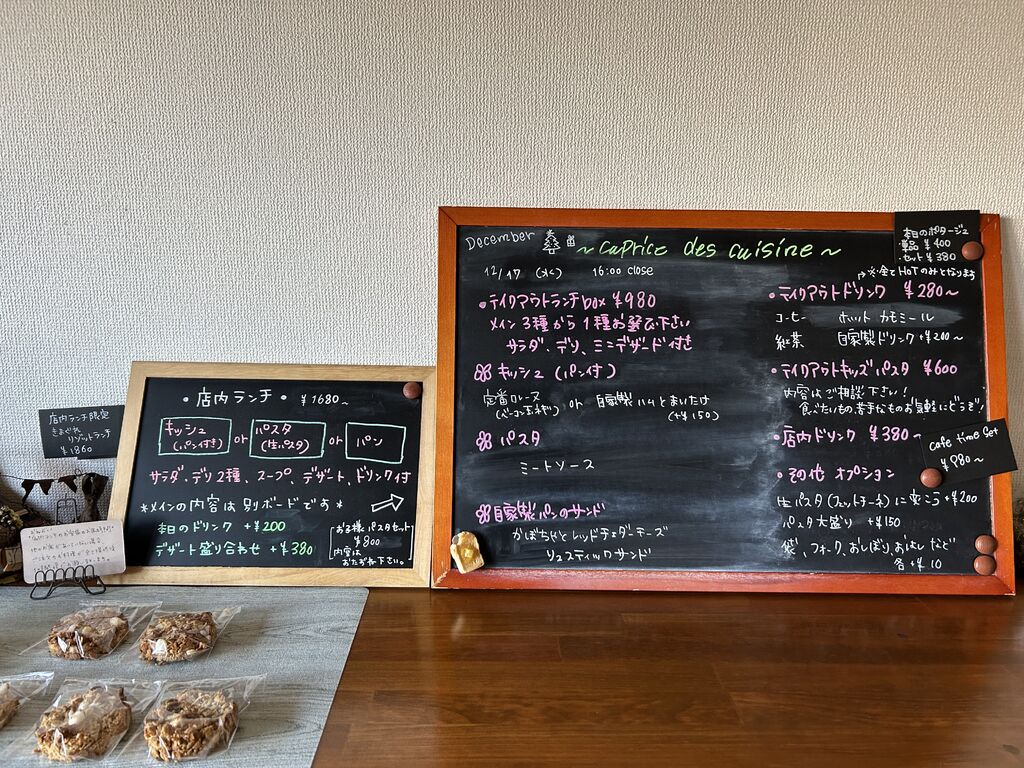 店内ランチ限定
きまぐれ
リゾットランチ
¥1860
・店内ランチ・ ¥1680~
キッシュ
(パン付き)
or
パスタ
(生パスタ)
or
パン
サラダ、デリ2種、スープ、デザート、ドリンク付
*メインの内容は別ボードです*
本日のドリンク +¥200
デザート盛り合わせ +¥380
お子様パスタセット
¥800
内容は
おたずね下さい。
December
~caprice des cuisine~
12/17 (水) 16:00 close
・テイクアウトランチbox ¥980
メイン3種から1種お選び下さい
サラダ、デリ、ミニデザート付き
キッシュ(パン付)
定番ロレーヌ
(ベーコン玉ネギ)
or 自家製ハムとまいたけ
(+¥150)
パスタ
ミートソース
自家製パンのサンド
かぼちゃとレッドチェダーチーズ
リュスティックサンド
本日のポタージュ
・単品 ¥400
・セット ¥380
※全てHOTのみとなります
・テイクアウトドリンク ¥280~
コーヒー ホットカモミール
紅茶 自家製ドリンク+¥200~
・テイクアウトキッズパスタ ¥600
内容はご相談下さい!
食べたいもの、苦手なものお気軽にどうぞ!
・店内ドリンク ¥380~
cafe time set
¥980~
・その他 オプション
生パスタ(フェットチーネ)に変こう+¥200
パスタ大盛り +¥150
袋、フォーク、おしぼり、おはしなど
各+¥10